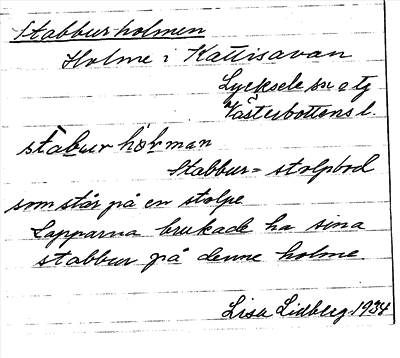 Stabburholmen
Holme i Kattisavan
Lycksele sn o tg
Västerbottens l.
stabur holman
Stabbur = stolpbod
som står på en stolpe
Lapparna brukade ha sina
stabbur på denne holme.
Lisa Lidberg 1934